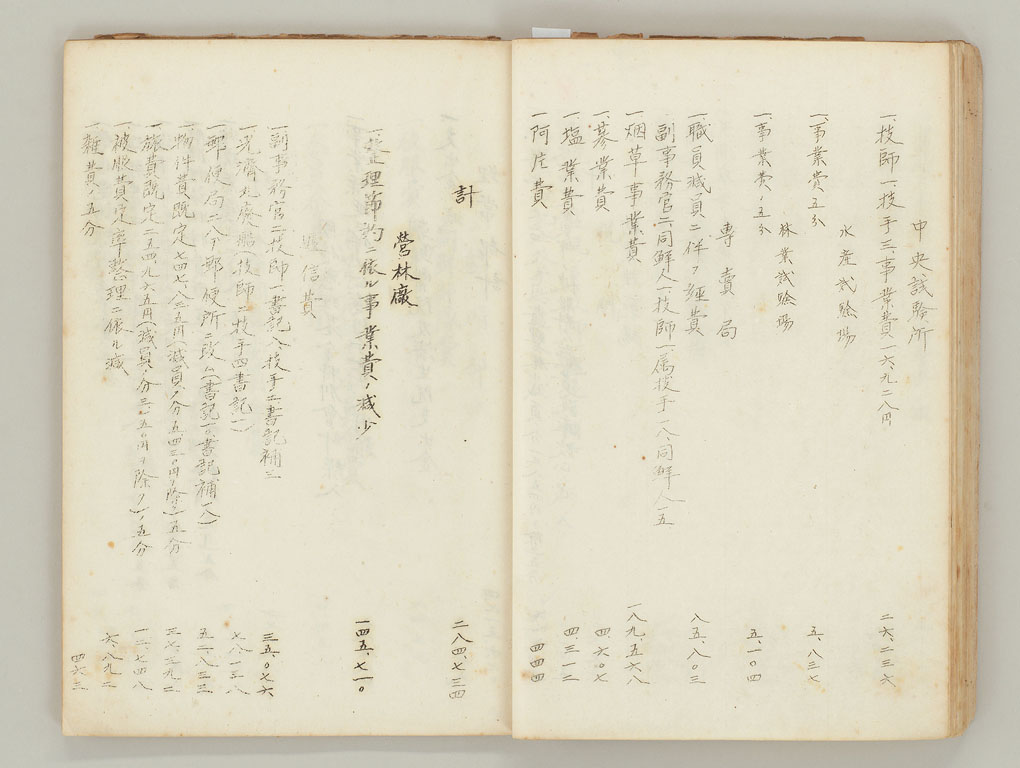 中央試驗所
一、技師一、技手三、事業費一六、九二八円 二六、二三六
水産試驗場
一、事業費五分 五、八三七
林業試驗場
一、事業費ノ五分 五、一〇四
專賣局
一、職員減員ニ伴フ経費 八五、八〇三
副事務官二、同鮮人一、技師一、属技手一八、同鮮人一五
一、烟草事業費 一八九、五六八
一、蔘業費 四、六〇七
一、塩業費 四、三一二
一、阿片費 四四四
計 二八四、七三四
營林廠
一、整理節約ニ依ル事業費ノ減少 一四五、七一〇
逓信費
一、副事務官二、技師一、書記八、技手二、書記補三 三五、〇七六
一、光濟丸廃船(技師二、技手四、書記一) 七、八一三八
一、郵便局二八ヲ郵便所ニ改ム(書記一、書記補一八) 五二、八二三
一、物件費既定七四七、八 五円(減員ノ分五四 〇円ヲ除ク)ノ五分 三七、三九二
一、旅費既定二五四、九六五円(減員ノ分三、 五〇円ヲ除ク)ノ五分 一二、七四八
一、被服費定率整理ニ依ル減 六、八九二
一、雜費ノ五分 四六三